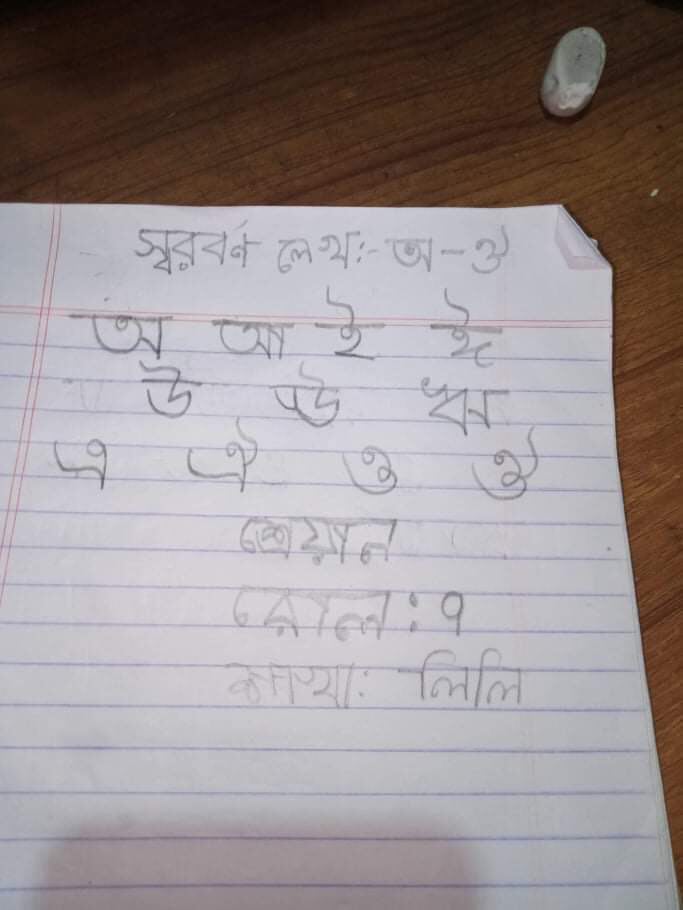 স্বরবর্ণ লেখ:- অ-ঔ
অ আ ই ঈ
উ ঊ ঋ
এ ঐ ও ঔ
শ্রেয়ান
রোল: ৭
শাখা: লিলি